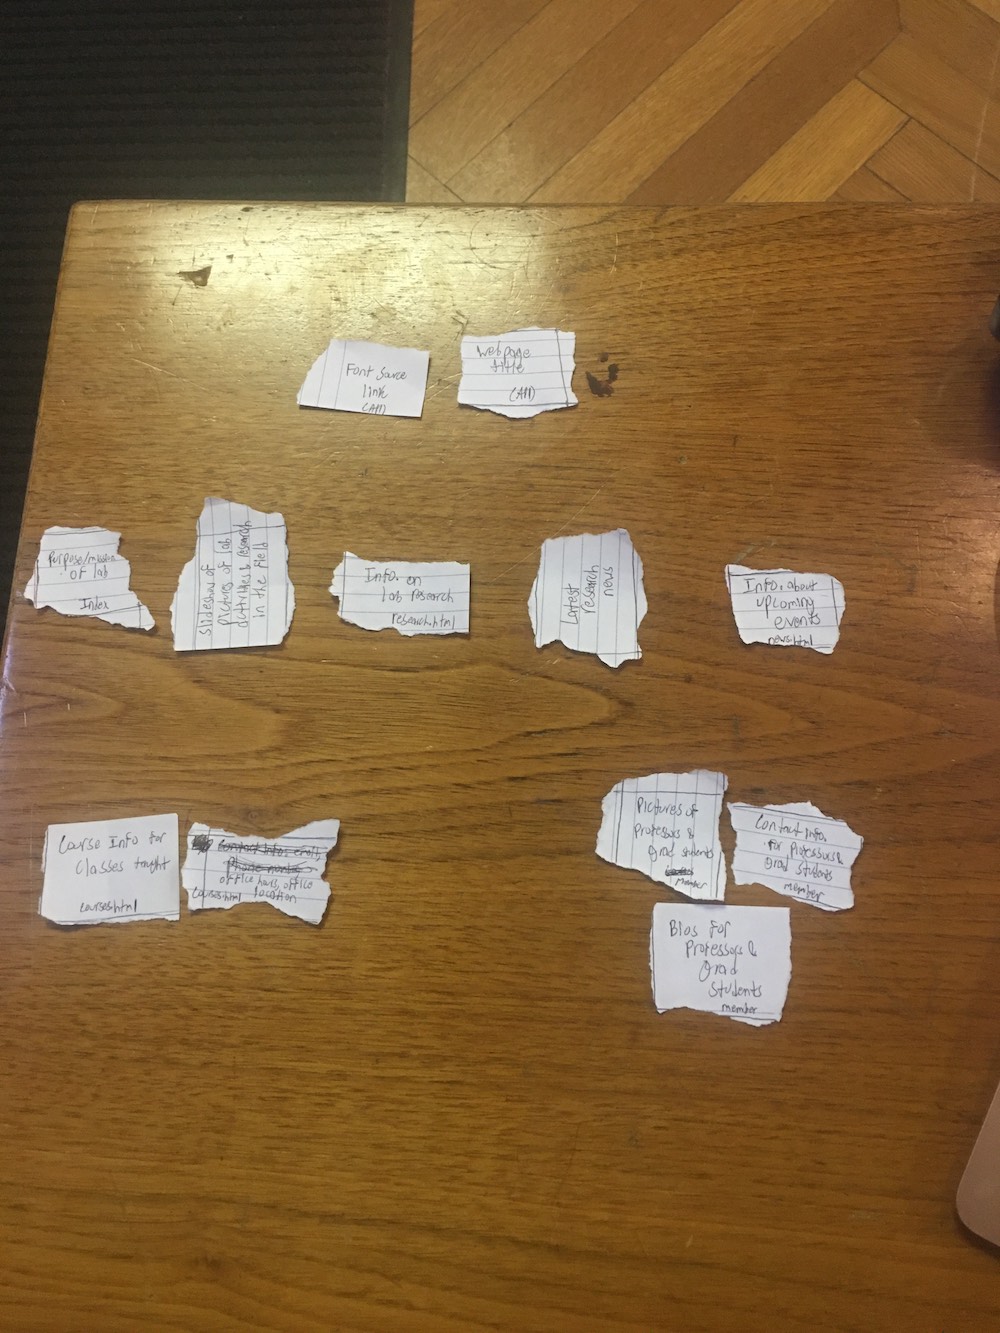 Font source
link
(All)
Webpage
title
(All)
Purpose/mission
of lab
Index
Slideshow of
pictures of lab
activities & research
in the field
Info. on
lab research
research.html
Latest
research
news
Info. about
upcoming
events
news.html
Course Info for
Classes taught
courses.html
Contact info: email,
Phone number
office hours, office
courses.html location
Pictures of
Professors &
grad students
member
Contact info.
for Professors &
grad students
member
Bios for
Professors &
Grad
Students
member